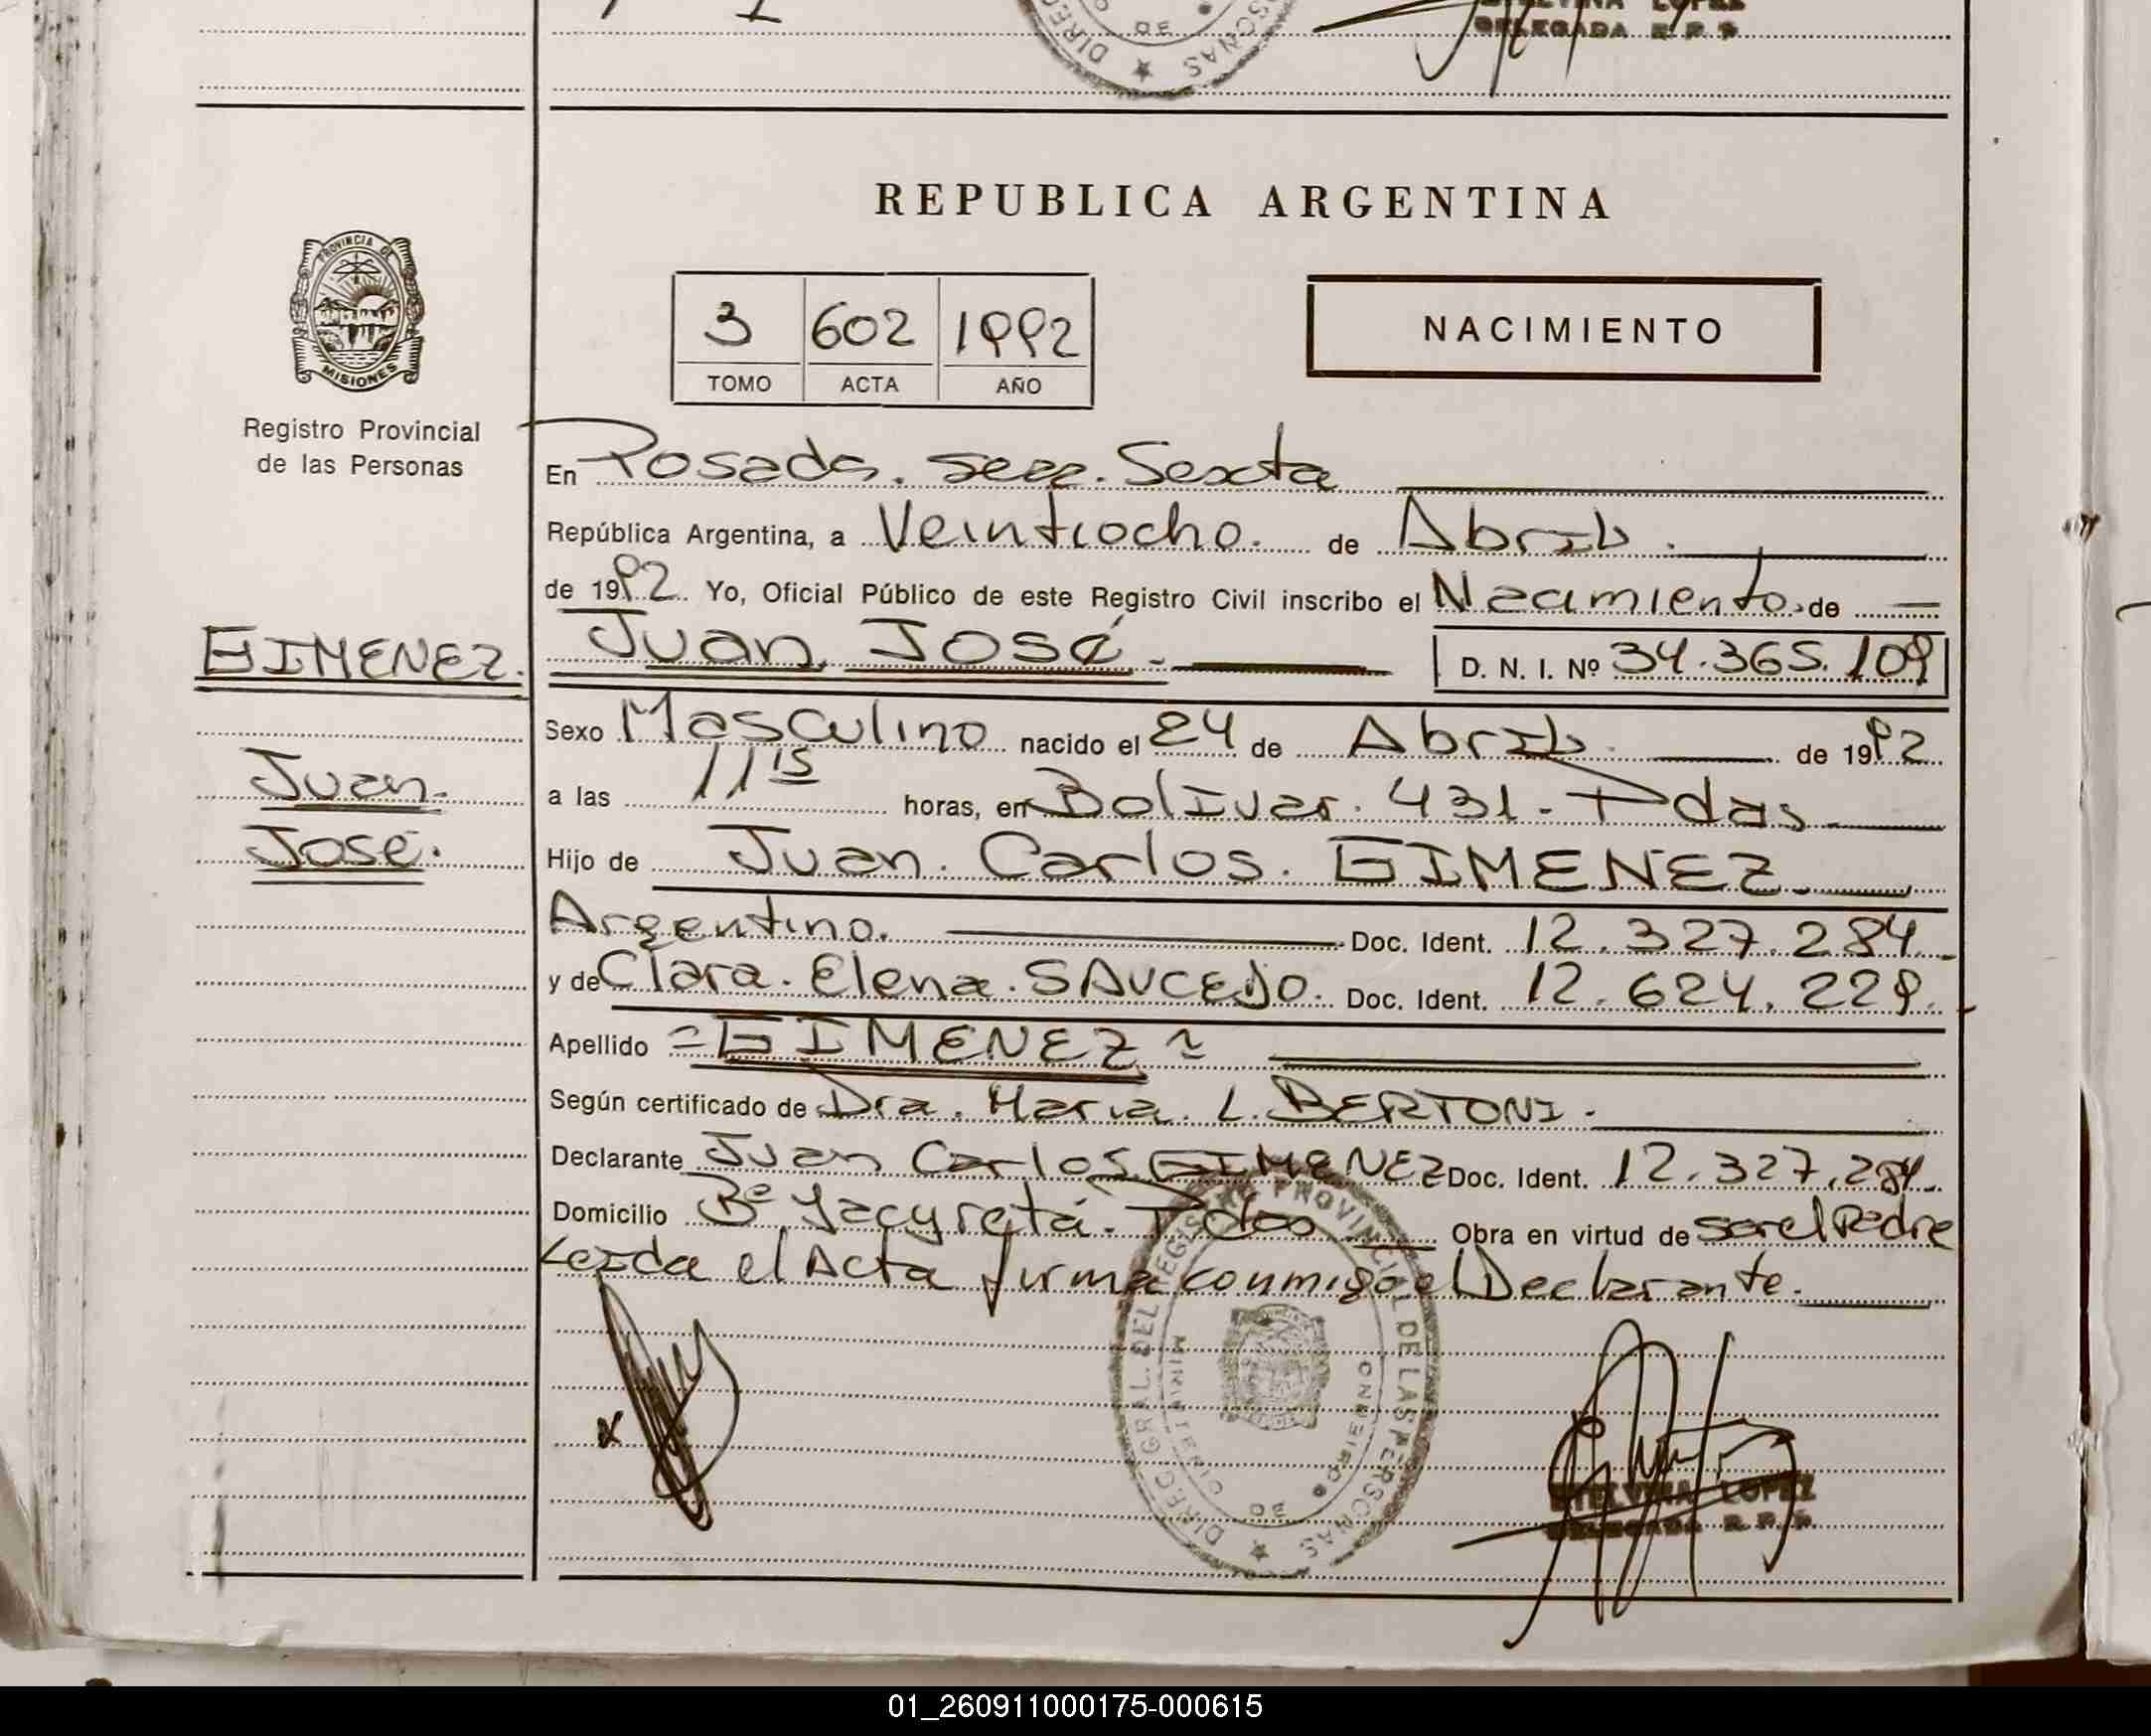 DELEGADA R. P. P.
REPUBLICA ARGENTINA
PROVINCIA DE
MISIONES
Registro Provincial
de las Personas
3 602 1992
TOMO ACTA AÑO
NACIMIENTO
En Posadas. Secc. Sexta
República Argentina, a Veintiocho. de Abril.
de 1992. Yo, Oficial Público de este Registro Civil inscribo el Nacimiento. de
GIMENEZ.
Juan José.-
D. N. I. Nº 34.365.109
Sexo Masculino nacido el 24 de Abril. de 1992
Juan.
José.
a las 11 15 horas, en Bolivar. 431- Pdas.
Hijo de Juan. Carlos. GIMENEZ.
Argentino. Doc. Ident. 12.327.284.
y de Clara. Elena. SAUCEDO. Doc. Ident. 12.624.229.
Apellido =GIMENEZ=
Según certificado de Dra. Maria. L. BERTONI.
Declarante Juan Carlos GIMENEZ Doc. Ident. 12.327.284.
Domicilio Bº Yacyretá. Pdas Obra en virtud de ser el Padre
Leida el Acta firma conmigo el Declarante.
x
DIREC. GRAL. DEL REGISTRO PROVINCIAL DE LAS PERSONAS
ETELVINA LOPEZ
DELEGADA R. P. P.
01_260911000175-000615